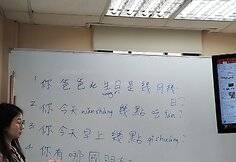 1. 你爸爸的生日是幾月幾日?
2. 你今天wǎnshàng幾點吃fàn?
3. 你今天早上幾點qǐchuáng?
4. 你有哪國朋